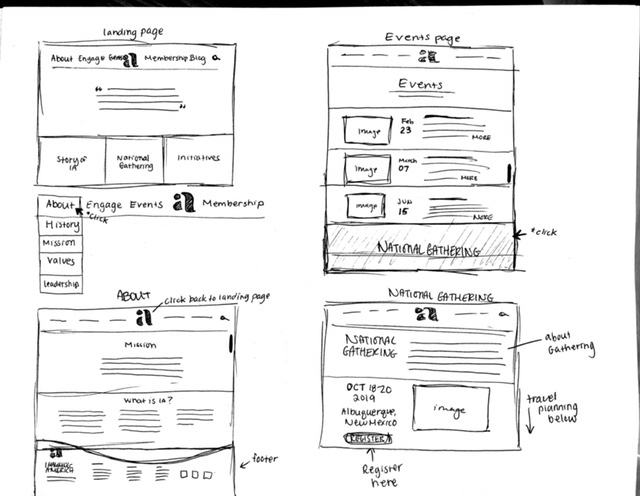 landing page
About Engage ia Membership Blog
“ ”
Story of IA
National Gathering
Initiatives
About Engage Events ia Membership
*click
History
Mission
Values
Leadership
ABOUT
click back to landing page
ia
Mission
What is IA?
ia
AMERICA
footer
Events page
ia
Events
image
Feb
23
MORE
image
March
07
MORE
image
JUN
15
MORE
NATIONAL GATHERING
*click
NATIONAL GATHERING
ia
NATIONAL
GATHERING
about
Gathering
OCT 18-20
2019
Albuquerque,
New Mexico
REGISTER
image
travel
planning
below
Register
here